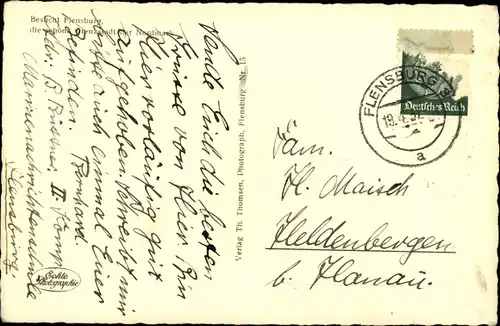 Besucht Flensburg,
die schöne Grenzstadt der Nordmark
Sende Euch die besten
Grüsse von Hier. Bin
Hier vorläufig gut
aufgehoben. Schreibt mir
bitte auch einmal Euer
Befinden
Bernhard
II. Komp.
Marinenachrichtenschule
Flensburg
Echte
Photographie
Verlag Th. Thomsen, Photograph, Flensburg Nr. 15
FLENSBURG
a
Deutsches Reich
Fam.
H. Maisch
Heldenbergen
b. Hanau.